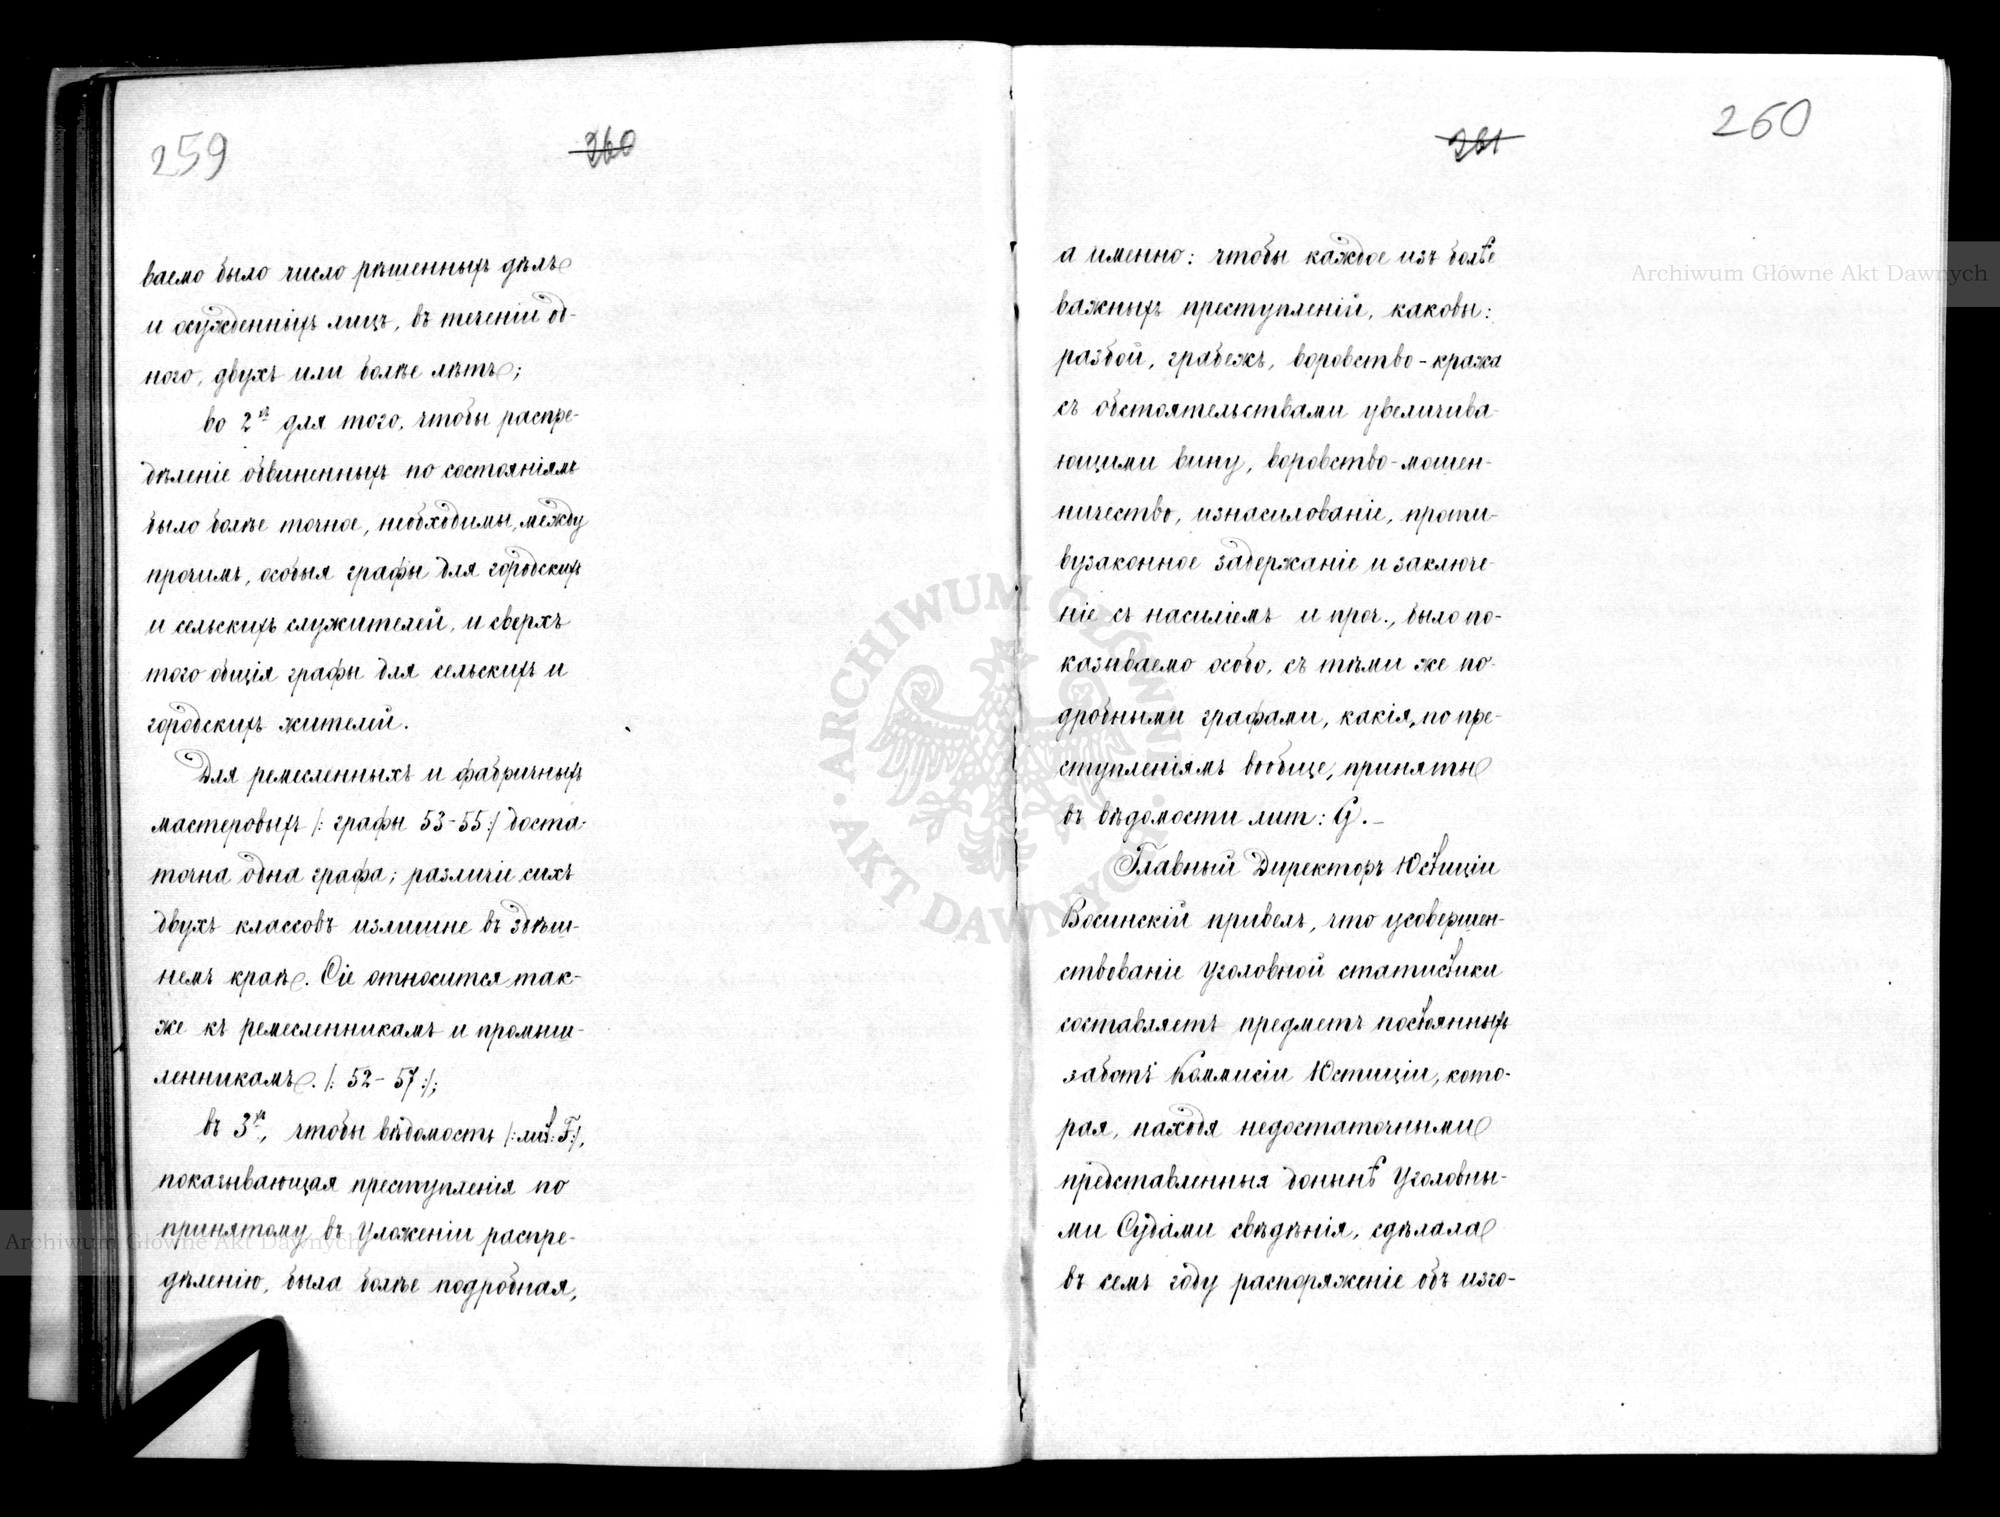 259
260
ваемо было число рѣшенныхъ дѣлъ
и осужденныхъ лицъ, въ теченіи од-
ного, двухъ или болѣе лѣтъ;
во 2хъ для того, чтобы распре-
дѣленіе обвиненныхъ по состояніямъ
было болѣе точное, необходимы, между
прочимъ, особыя графы для городскихъ
и сельскихъ служителей, и сверхъ
того общія графы для сельскихъ и
городскихъ жителей.
Для ремесленныхъ и фабричныхъ
мастеровыхъ /: графы 53-55:/ доста-
точна одна графа; различіе сихъ
двухъ классовъ излишне въ здѣш-
немъ краѣ. Сіе относится так-
же къ ремесленникамъ и промыш-
ленникамъ. /: 52-57:/;
въ 3хъ, чтобы вѣдомость /:лит: F:/,
показывающая преступленія по
принятому въ Уложеніи распре-
дѣленію, была болѣе подробная,
261
260
а именно: чтобы каждое изъ болѣе
важныхъ преступленій, каковы:
разбой, грабежъ, воровство-кража
съ обстоятельствами увеличива-
ющими вину, воровство-мошен-
ничество, изнасилованіе, проти-
вузаконное задержаніе и заключе-
ніе съ насиліемъ и проч., было по-
казываемо особо, съ тѣми же по-
дробными графами, какія, по пре-
ступленіямъ вообще, приняты
въ вѣдомости лит: G.-
Главный Директоръ Юстиціи
Восинскій привелъ, что усовершен-
ствованіе уголовной статистики
составляетъ предметъ постоянныхъ
заботъ Коммисіи Юстиціи, кото-
рая, находя недостаточными
представленныя донынѣ Уголовны-
ми Судами свѣдѣнія, сдѣлала
въ семъ году распоряженіе объ изго-
Archiwum Główne Akt Dawnych
Archiwum Główne Akt Dawnych
ARCHIWUM GŁÓWNE · AKT DAWNYCH ·